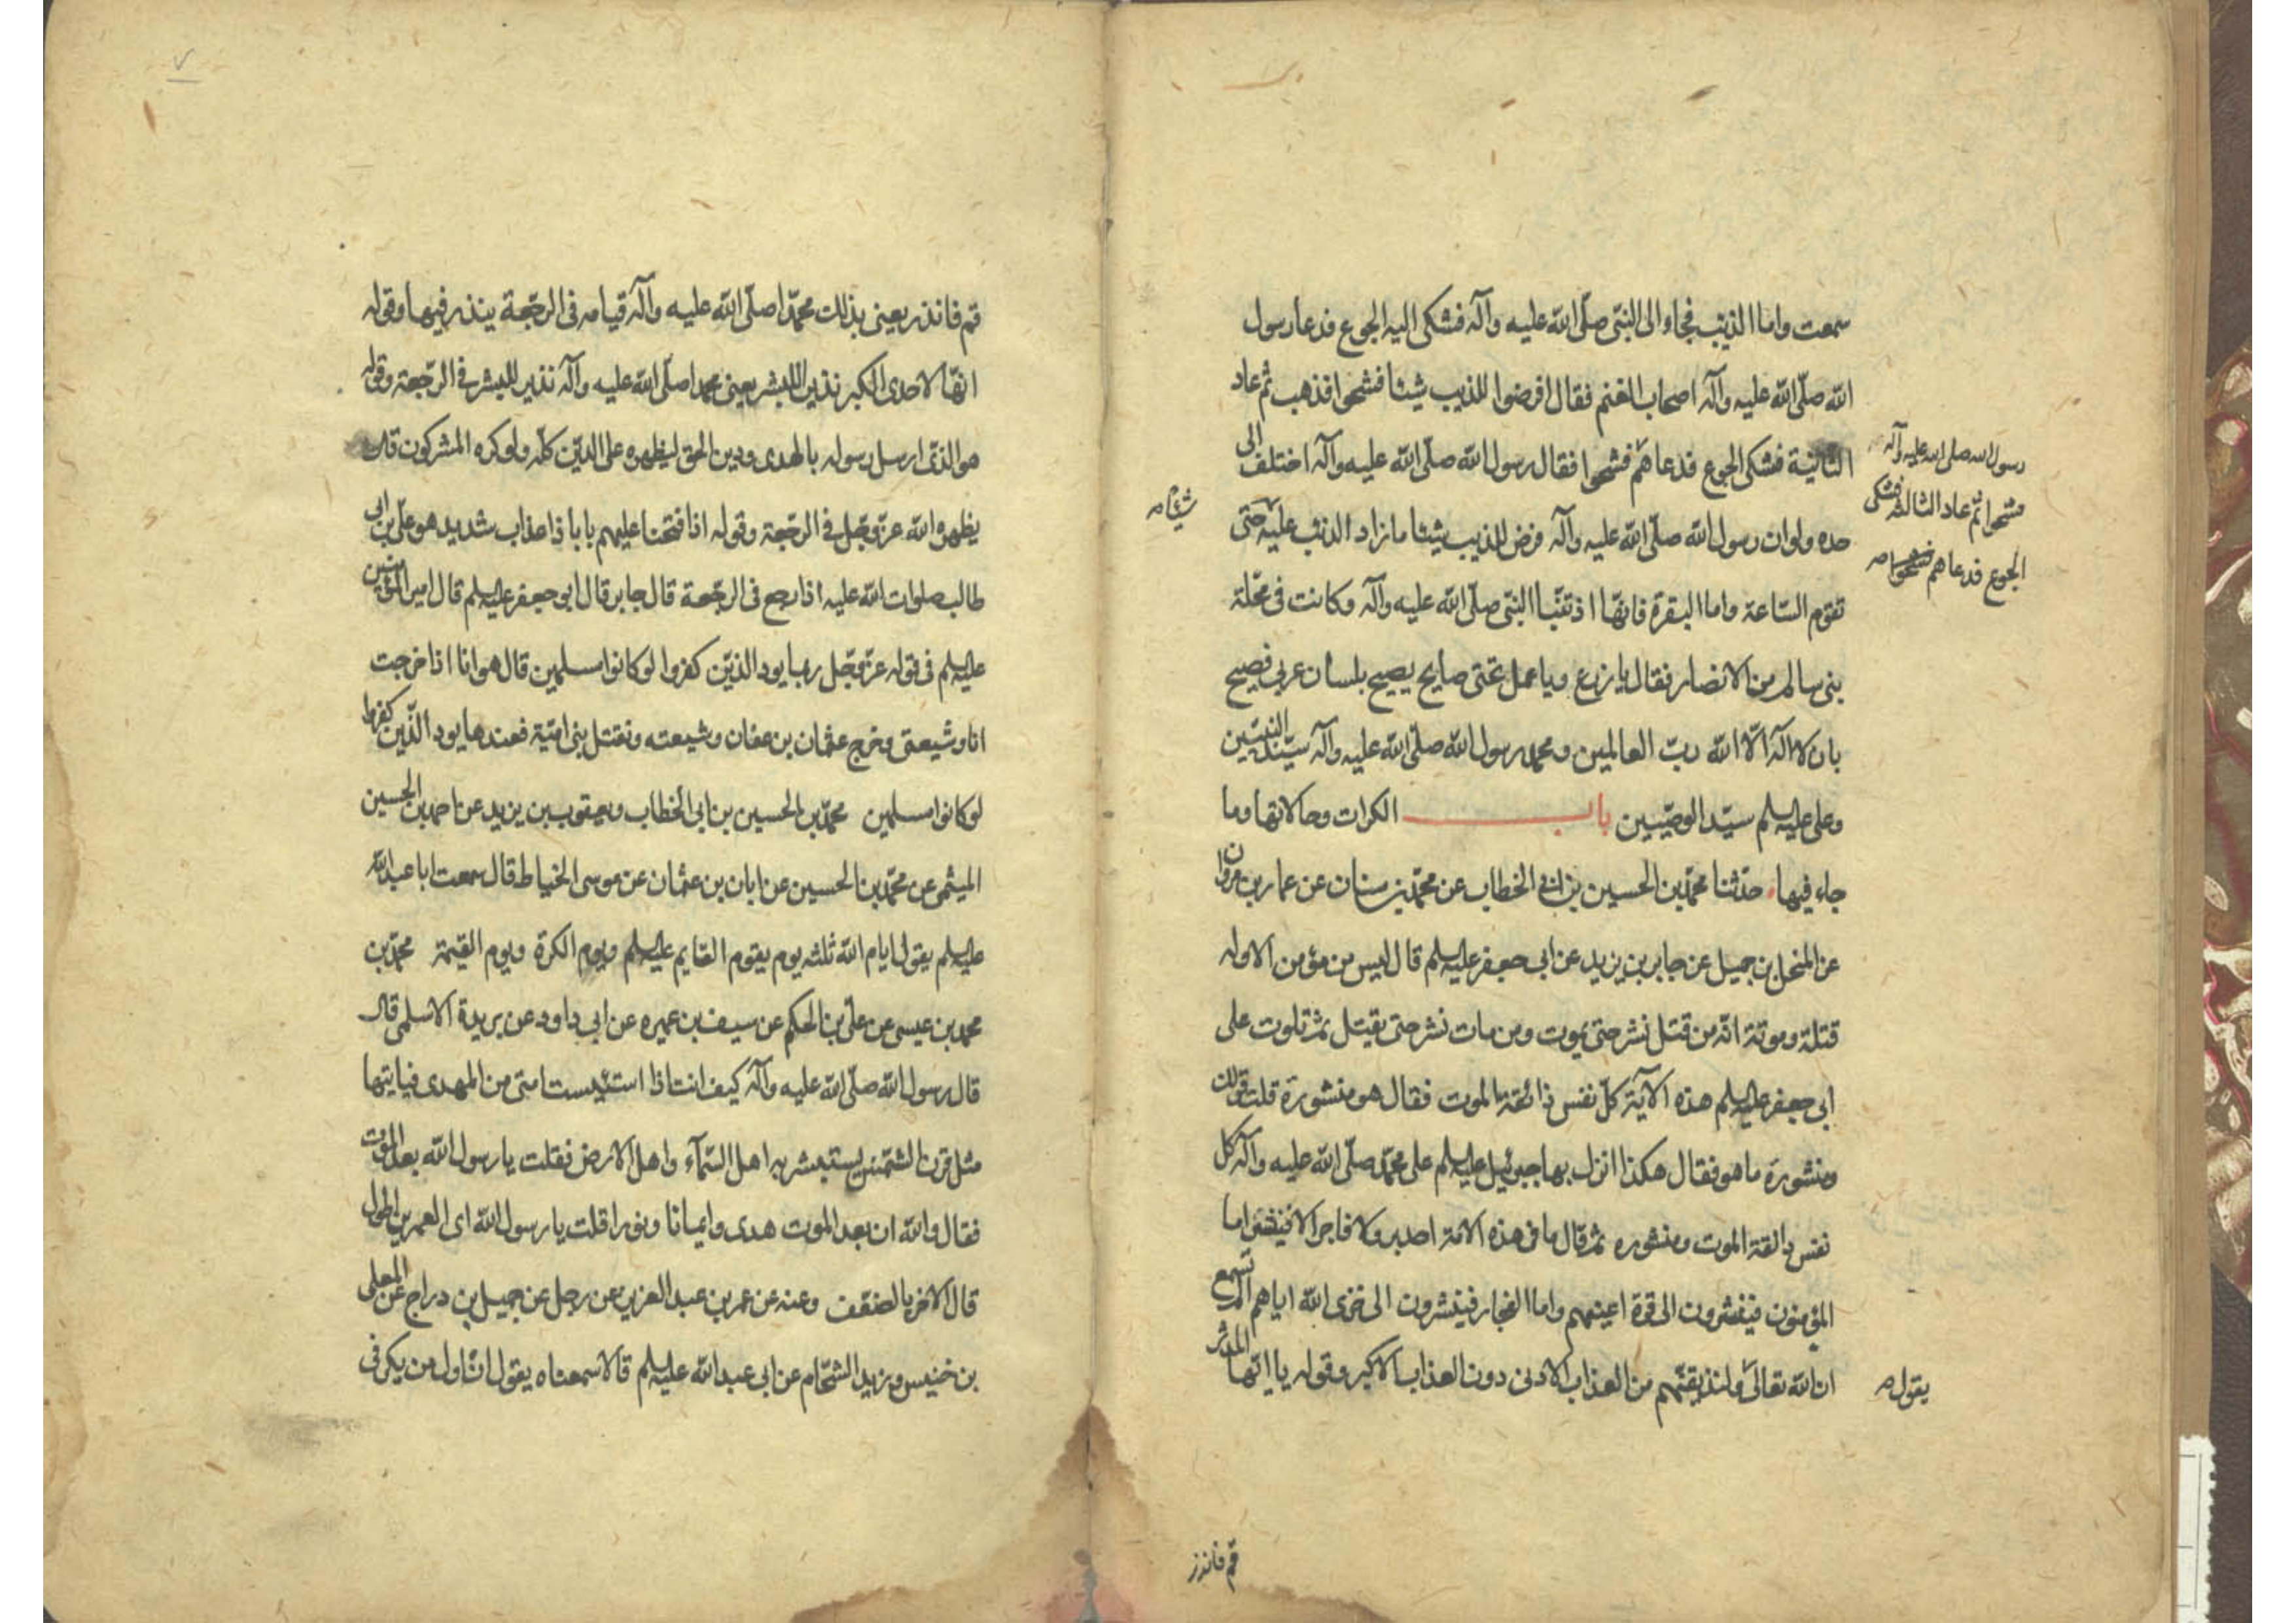 سمعت واما الذيب فجاء الى النبى صلّى الله عليه وآله فشكى اليه الجوع فدعا رسول
الله صلّى الله عليه وآله اصحاب الغنم فقال افرضوا للذيب شيئا فشحوا فذهب ثم عاد
الثانية فشكى الجوع فدعاهم فشحوا فقال رسول الله صلّى الله عليه وآله اختلف الى
حده ولو ان رسول الله صلّى الله عليه وآله فرض للذيب شيئا ما زاد الذئب عليه حتى
تقوم السّاعة واما البقرة فانها اذ تنبّا النبى صلّى الله عليه وآله وكانت فى محلّة
بنى سالم من الانصار فقال يا زرع ويا عمل نحتى صايح يصيح بلسان عربى فصيح
بان لا اله الّا الله ربّ العالمين ومحمد رسول الله صلّى الله عليه وآله سيّد النبيّين
وعلى عليه السلم سيّد الوصيّين باب الكرات وحالاتها وما
جاء فيها حدّثنا محمّد بن الحسين بن ابى الخطاب عن محمّد بن سنان عن عمار بن مروان
عن المنخل بن جميل عن جابر بن يزيد عن ابى جعفر عليه السلم قال ليس من مؤمن الا وله
قتلة وموتة انّه من قتل نشر حتى يموت ومن مات نشر حتى يقتل ثم تلوت على
ابى جعفر عليه السلم هذه الآية كلّ نفس ذائقة الموت فقال هو منشورة قلت قولك
ومنشورة ما هو فقال هكذا انزل بها جبرئيل عليه السلم على محمّد صلّى الله عليه وآله كل
نفس ذائقة الموت ومنشوره ثم قال ما فى هذه الامّة احد بر ولا فاجر الا فينشر اما
المؤمنون فينشرون الى قرة اعينهم واما الفجار فينشرون الى خزى الله اياهم الم تسمع
ان الله تعالى ولنذيقنّهم من العذاب الادنى دون العذاب الاكبر وقوله يا ايّها المدثر
رسول الله صلى الله عليه وآله
فشحوا ثم عاد الثالثة فشكى
الجوع فدعاهم فشحوا صه
شيئا صه
يقول صه
قم فانذر
٧
قم فانذر يعنى بذلك محمّدا صلّى الله عليه وآله قيامه فى الرجّعة ينذر فيها وقوله
انّها لاحدى الكبر نذيرا للبشر يعنى محمدا صلّى الله عليه وآله نذير للبشر فى الرجّعة وقوله
هو الذى ارسل رسوله بالهدى ودين الحق ليظهره على الدّين كلّه ولو كره المشركون قال
يظهره الله عزّ وجّل فى الرجّعة وقوله اذا فتحنا عليهم بابا ذا عذاب شديد هو علىّ بن ابى
طالب صلوات الله عليه اذا رجع فى الرجّعة قال جابر قال ابى جعفر عليه السلم قال امير المؤمنين
عليه السلم فى قوله عزّ وجّل ربما يود الذيّن كفروا لو كانوا مسلمين قال هو انا اذا خرجت
انا وشيعتى وخرج عثمان بن عفان وشيعته ونقتل بنى اميّة فعندها يود الذّين كفروا
لو كانوا مسلمين محمّد بن الحسين بن ابى الخطاب ويعقوب بن يزيد عن احمد بن الحسين
الميثمى عن محمّد بن الحسين عن ابان بن عثمان عن موسى الخياط قال سمعت ابا عبد الله
عليه السلم يقول ايام الله ثلثه يوم يقوم القايم عليه السلم ويوم الكرة ويوم القيمة محمّد بن
محمد بن عيسى عن علىّ بن الحكم عن سيف بن عميره عن ابى داود عن بريدة الاسلمى قال
قال رسول الله صلّى الله عليه وآله كيف انت اذا استئيست امتى من المهدى فياتيها
مثل قرن الشمّس يستبشر به اهل السّمآء واهل الارض فقلت يا رسول الله بعد الموت
فقال والله ان بعد الموت هدى وايمانا ونورا قلت يا رسول الله اى العمرين اطول
قال الاخر بالضعّف وعنه عن عمر بن عبد العزيز عن رجل عن جميل بن دراج عن المعلى
بن خنيس وزيد الشحّام عن ابى عبد الله عليه السلم قالا سمعناه يقول انّ اول من يكر فى